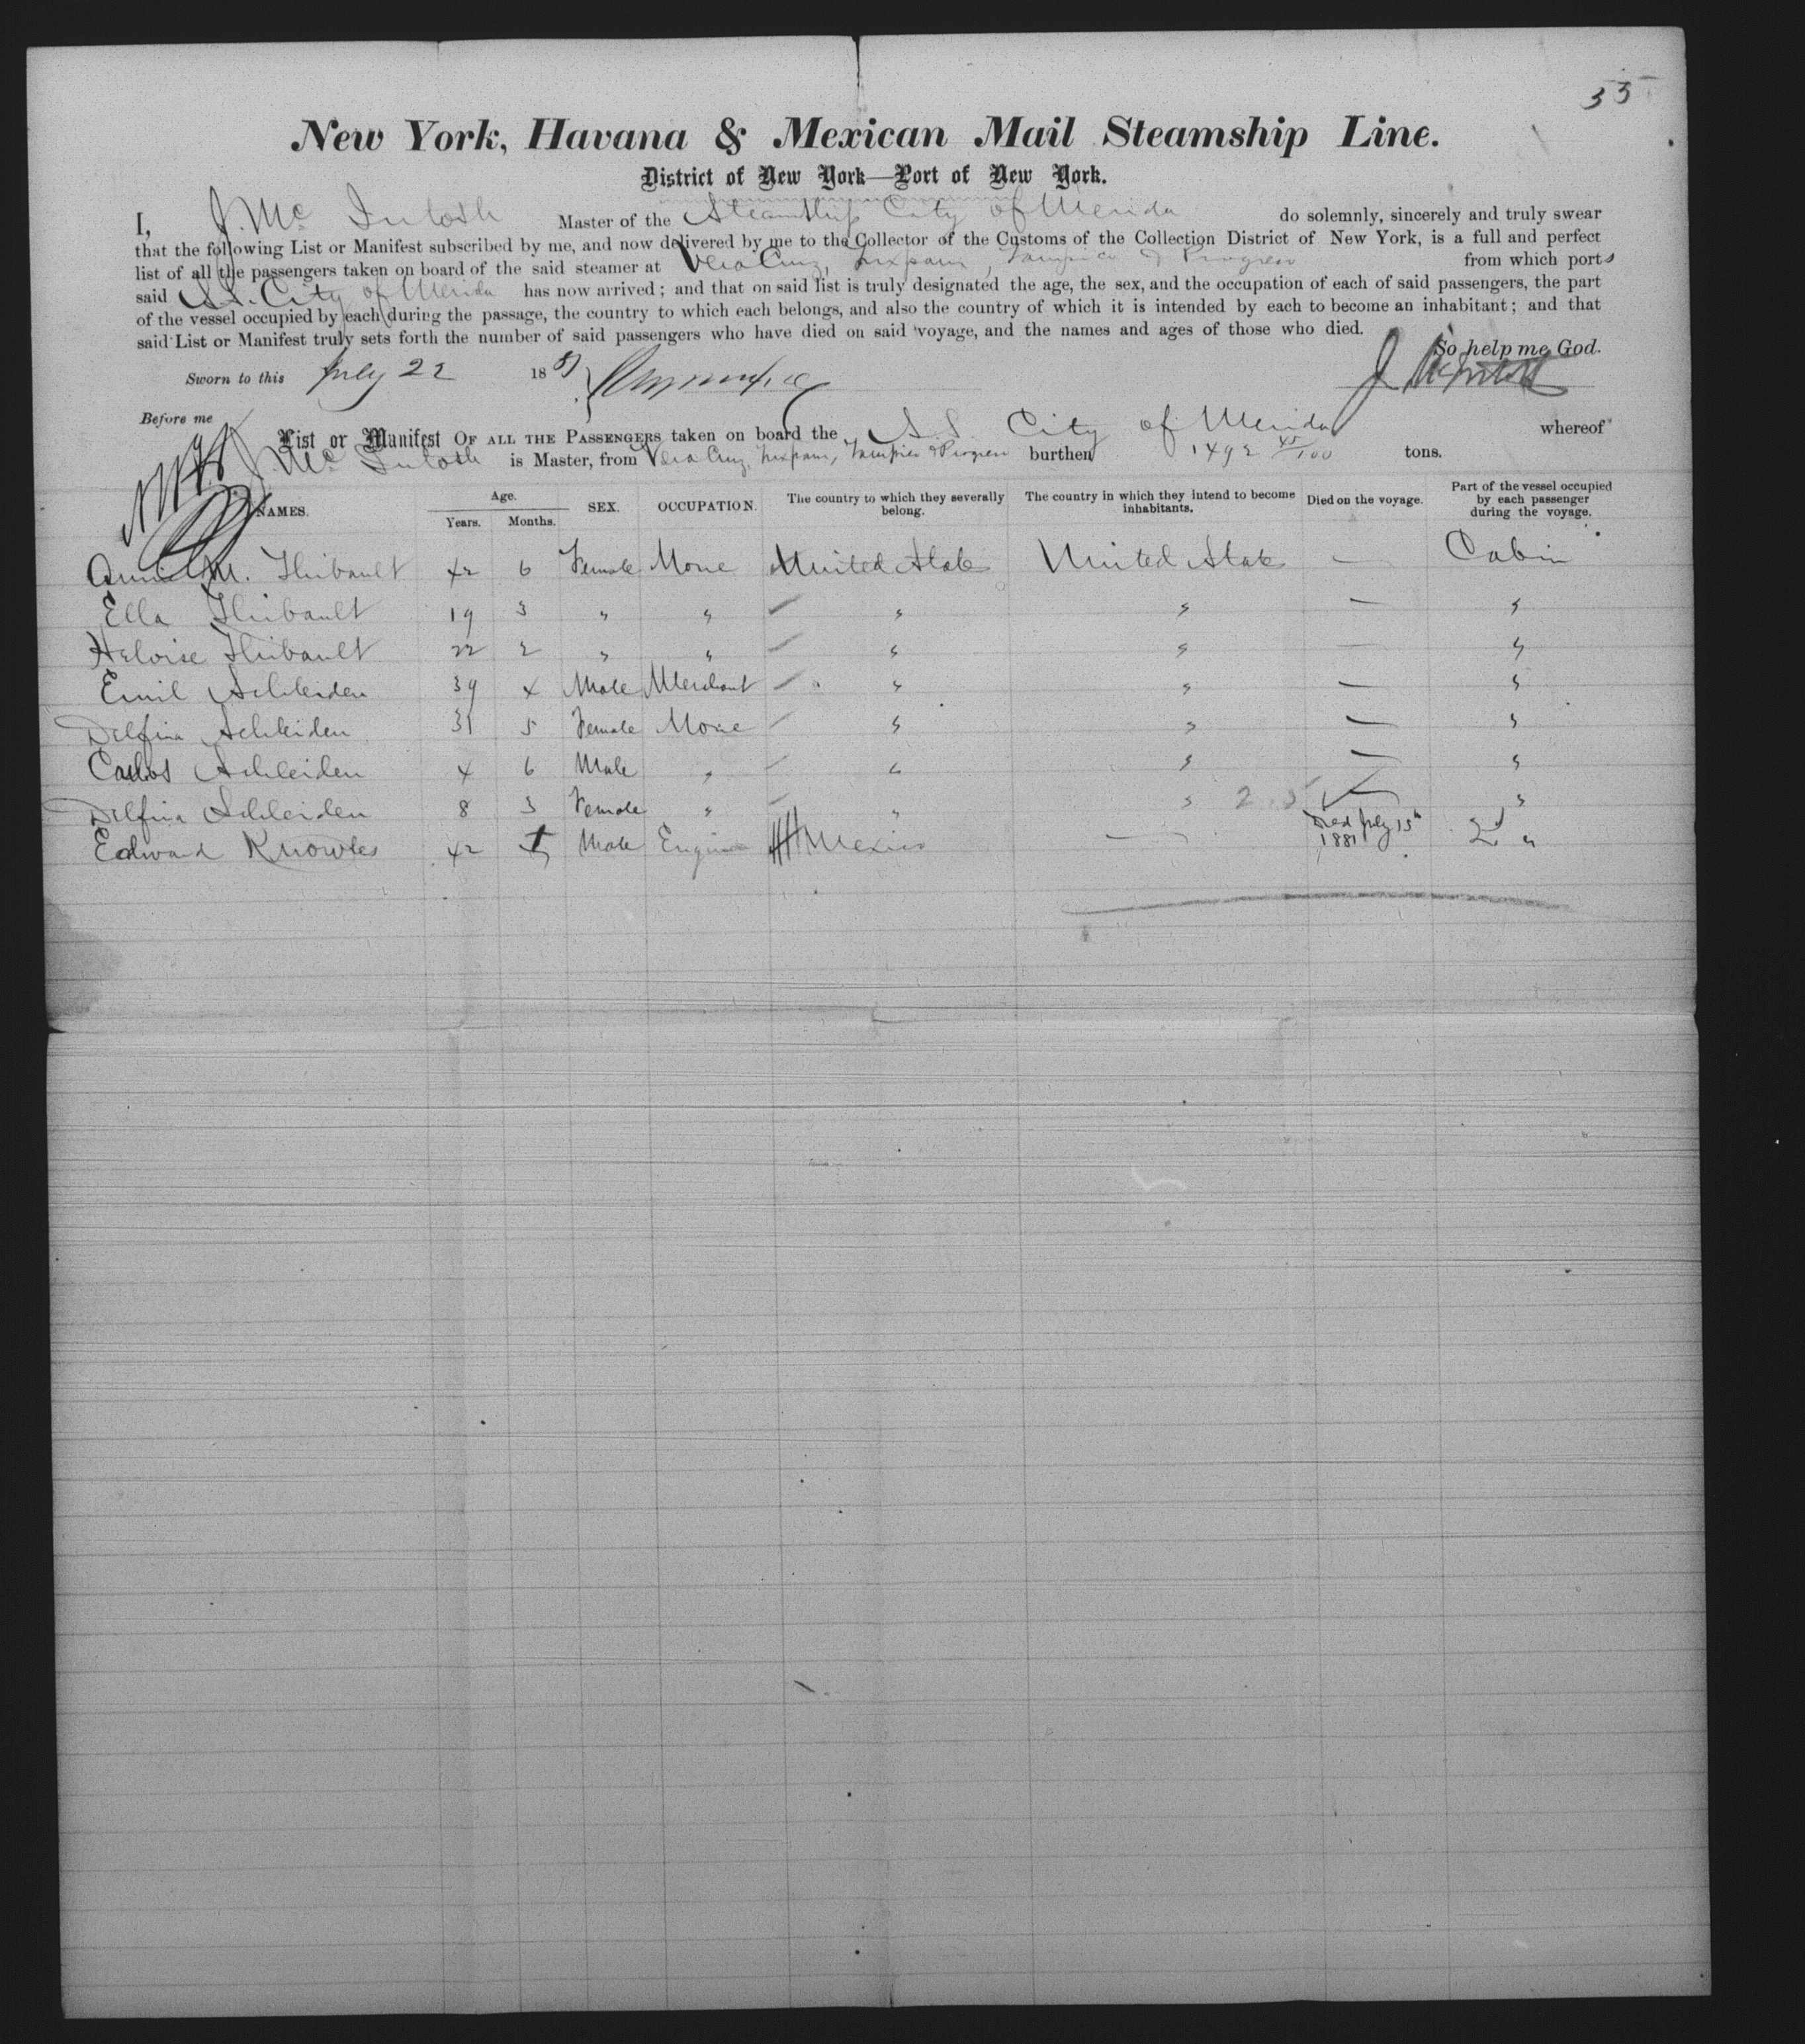 35
New York, Havana & Mexican Mail Steamship Line.
District of New York—Port of New York.
I, J. Mc Intosh Master of the Steamship City of Merida do solemnly, sincerely and truly swear
that the following List or Manifest subscribed by me, and now delivered by me to the Collector of the Customs of the Collection District of New York, is a full and perfect
list of all the passengers taken on board of the said steamer at Vera Cruz, Tuxpam, Tampico & Progreso from which ports
said S.S. City of Merida has now arrived; and that on said list is truly designated the age, the sex, and the occupation of each of said passengers, the part
of the vessel occupied by each during the passage, the country to which each belongs, and also the country of which it is intended by each to become an inhabitant; and that
said List or Manifest truly sets forth the number of said passengers who have died on said voyage, and the names and ages of those who died.
So help me God.
Sworn to this July 22 1881 J McIntosh
Before me
List or Manifest OF ALL THE PASSENGERS taken on board the S.S. City of Merida whereof
J. Mc Intosh is Master, from Vera Cruz, Tuxpam, Tampico & Progreso burthen 1492 45/100 tons.
NAMES. Age. Years. Months. SEX. OCCUPATION. The country to which they severally belong. The country in which they intend to become inhabitants. Died on the voyage. Part of the vessel occupied by each passenger during the voyage.
Annie M. Thibault 42 6 Female None United States United States — Cabin
Ella Thibault 19 3 " " " " — "
Heloise Thibault 22 2 " " " " — "
Emil Schleiden 39 4 Male Merchant " " — "
Delfina Schleiden 31 5 Female None " " — "
Carlos Schleiden 4 6 Male " " " — "
Delfina Schleiden 8 3 Female " " " — "
Edward Knowles 42 Male Engineer Mexico — Died July 15th 1881 2d "